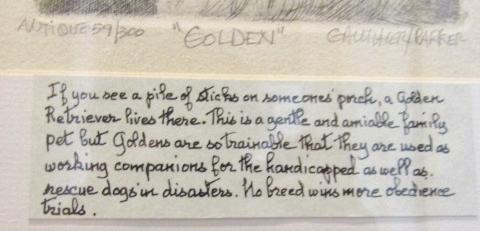 ANTIQUE 59/300 "GOLDEN"
If you see a pile of sticks on someones' porch, a Golden
Retriever lives there. This is a gentle and amiable family
pet but Goldens are so trainable that they are used as
working companions for the handicapped as well as.
rescue dogs in disasters. No breed wins more obedience
trials.